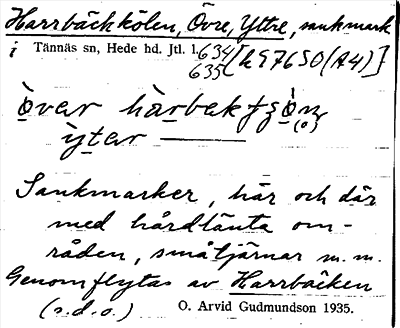 Harrbäckkölen, Övre, Yttre, sankmark
i Tännäs sn, Hede hd. Jtl. l. 634 [h97650(A4)]
635
över
ỳter ———
Sankmarker, här och där
med hårdlänta om-
råden, småtjärnar m.m.
Genomflytas av Harrbäcken
(s.d.o.)
O. Arvid Gudmundson 1935.